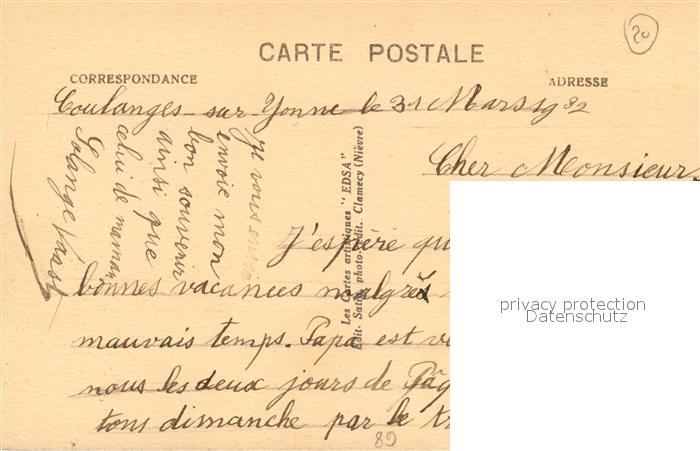 20
CARTE POSTALE
CORRESPONDANCE
ADRESSE
Coulanges-sur-Yonne le 31 Mars 1932
Cher Monsieur
J'espère qu
bonnes vacances malgrés
mauvais temps. Papa est v
nous les deux jours de Pâq
tons dimanche par le tr
Je vous
envoie mon
bon souvenir
ainsi que
celui de maman
Solange
Les Cartes artistiques "EDSA"
Edit- photo-édit. Clamecy (Nièvre)
privacy protection
Datenschutz
89